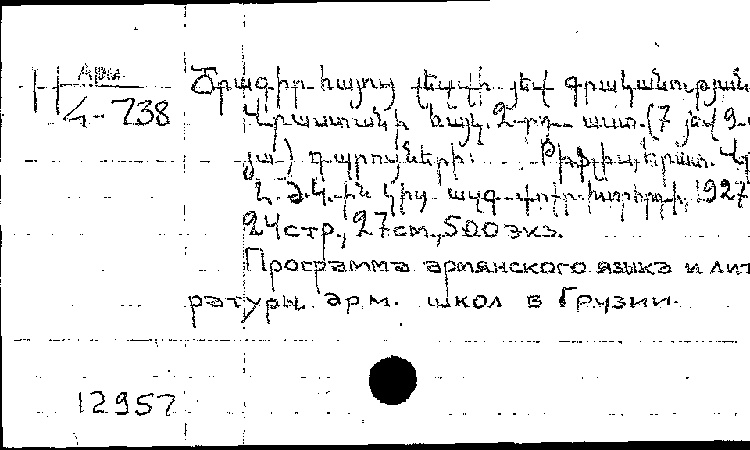 Н Арм
4-738
Ծրագիր հայոց լեզվի յեվ գրականության
Վրաստանի հայկ. 2-րդ աստ. (7 յեվ 9-
յա) դպրոցների:
1927
24 стр., 27 см., 500 экз.
Программа армянского языка и лит
ратуры арм. школ в Грузии.
12957